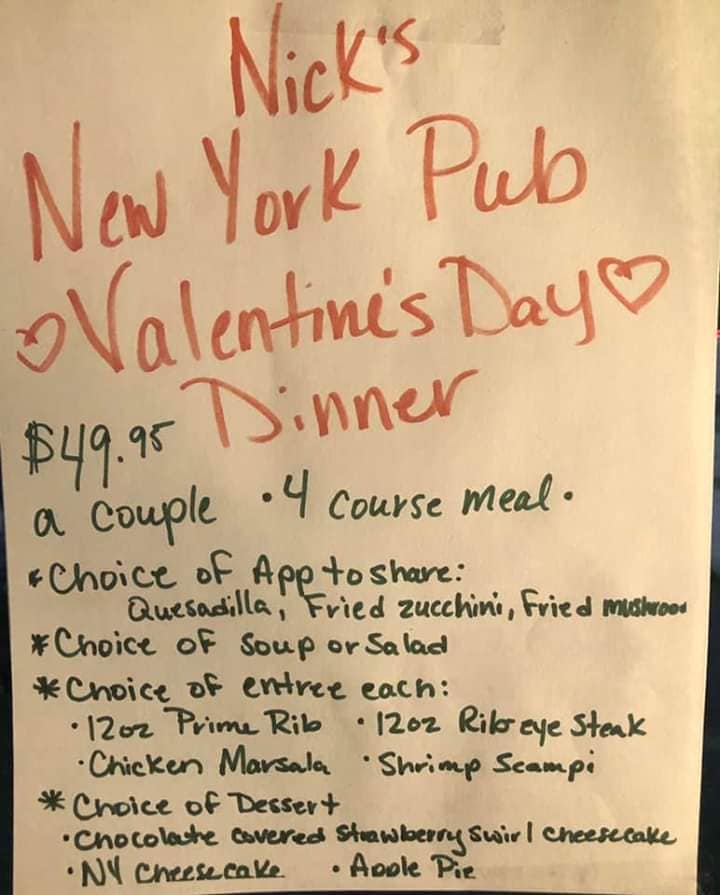 Nick's
New York Pub
Valentine's Day
Dinner
$49.95
a couple • 4 course meal •
* Choice of App to share:
Quesadilla, Fried zucchini, Fried mushroom
* Choice of Soup or Salad
* Choice of entree each:
• 12oz Prime Rib • 12oz Ribeye Steak
• Chicken Marsala • Shrimp Scampi
* Choice of Dessert
• Chocolate covered Strawberry Swirl cheesecake
• NY Cheesecake • Apple Pie